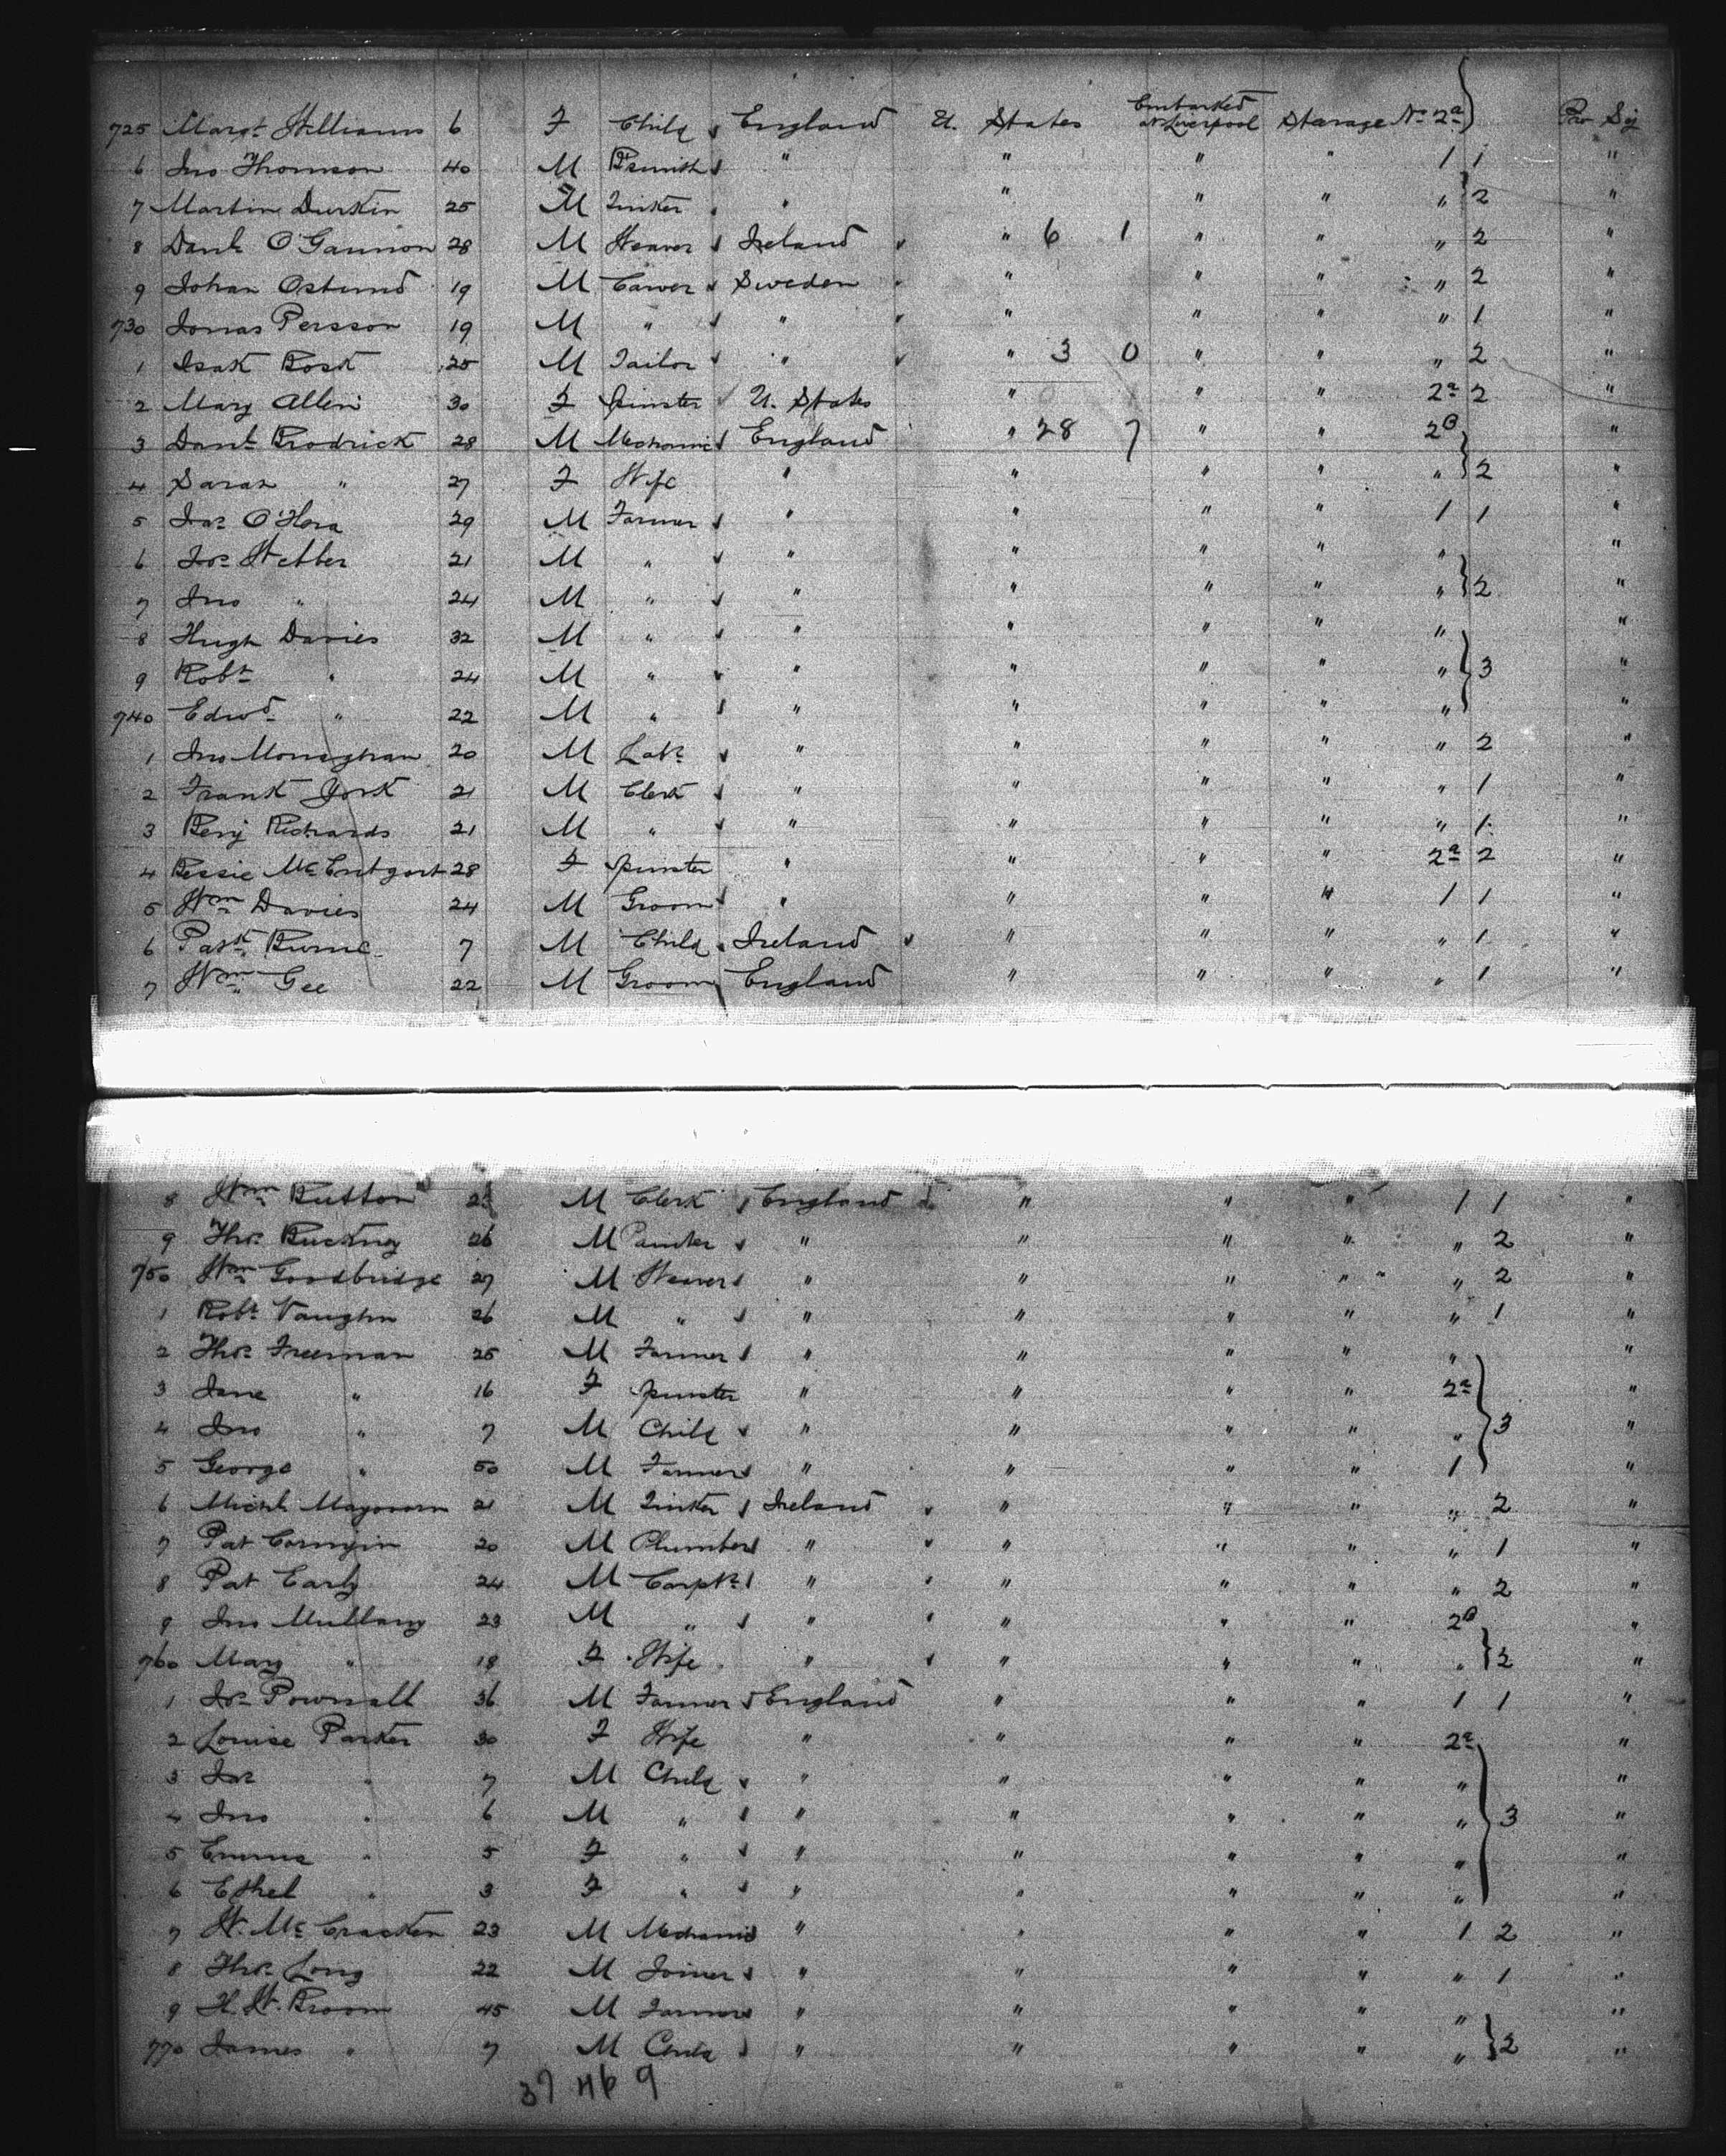 725 Margt Williams 6 F Child England U. States Embarked at Liverpool Steerage No 2a Pro Soj
6 Jno Thomson 40 M Bsmith " " " " 1 1 "
7 Martin Durkin 25 M Tinker " " " " " 2 "
8 Danl O'Gannon 28 M Weaver Ireland " 6 1 " " " 2 "
9 Johan Ostund 19 M Carver Sweden " " " " 2 "
730 Jonas Persson 19 M " " " " " " 1 "
1 Isak Bosk 25 M Tailor " " 3 0 " " " 2 "
2 Mary Allen 30 F Spinster U. States " " " 2a 2 "
3 Danl Brodrick 28 M Mechanic England " 28 7 " " 2B "
4 Sarah " 27 F Wife " " " " " 2 "
5 Jas O'Hora 29 M Farmer " " " " 1 1 "
6 Jos Webber 21 M " " " " " " "
7 Jno " 24 M " " " " " " 2 "
8 Hugh Davies 32 M " " " " " " "
9 Robt " 24 M " " " " " " 3 "
740 Edwd " 22 M " " " " " " "
1 Jno Monaghan 20 M Labr " " " " " 2 "
2 Frank York 21 M Clerk " " " " " 1 "
3 Benj Richards 21 M " " " " " " 1 "
4 Bessie McEntgart 28 F Spinster " " " " 2a 2 "
5 Wm Davies 24 M Groom " " " " 1 1 "
6 Patk Burne 7 M Child Ireland " " " " 1 "
7 Wm Gee 22 M Groom England " " " " 1 "
8 Wm Button M Clerk England " " " 1 1 "
9 Thos Buckney 26 M Painter " " " " " 2 "
750 Wm Goodbridge 27 M Weaver " " " " " 2 "
1 Robt Vaughn 26 M " " " " " " 1 "
2 Thos Freeman 25 M Farmer " " " " " "
3 Jane " 16 F Spinster " " " " 2a "
4 Jno " 7 M Child " " " " " 3 "
5 George " 50 M Farmer " " " " 1 "
6 Michl 21 M Tinker Ireland " " " " 2 "
7 Pat 20 M Plumber " " " " " 1 "
8 Pat Early 24 M Carptr " " " " " 2 "
9 Jno Mullany 23 M " " " " " 2B "
760 Mary " 18 F Wife " " " " " 2 "
1 Jos Pownall 36 M Farmer England " " " 1 1 "
2 Louise Parker 30 F Wife " " " " 2a "
3 Jos " 7 M Child " " " " " "
4 Jno " 6 M " " " " " " 3 "
5 Emma " 5 F " " " " " " "
6 Ethel " 3 F " " " " " " "
7 W. McCracken 23 M Mechanic " " " " 1 2 "
8 Thos Long 22 M Joiner " " " " " 1 "
9 H. W. Broom 45 M Farmer " " " " " "
770 James " 7 M Child " " " " " 2 "
37 46 9